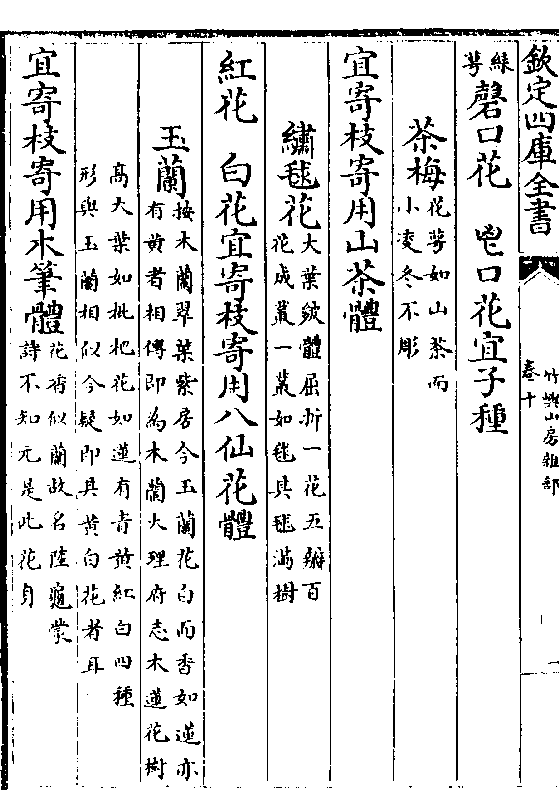 欽定四庫全書
竹嶼山房雜部
卷十
綠萼
磬口花 㽲口花宜子種
茶梅
花萼如山茶而
小凌冬不彫
宜寄枝寄用山茶體
繡毬花
大葉皴體屈折一花五瓣百
花成叢一叢如毬其毬滿樹
紅花 白花宜寄枝寄用八仙花體
玉蘭
按木蘭翠葉紫房今玉蘭花白而香如蓮亦
有黃者相傳即為木蘭大理府志木蓮花樹
高大葉如枇杷花如蓮有青黃紅白四種
形與玉蘭相似今疑即其黃白花者耳
宜寄枝寄用木筆體
花香似蘭故名陸龜蒙
詩不知元是此花身